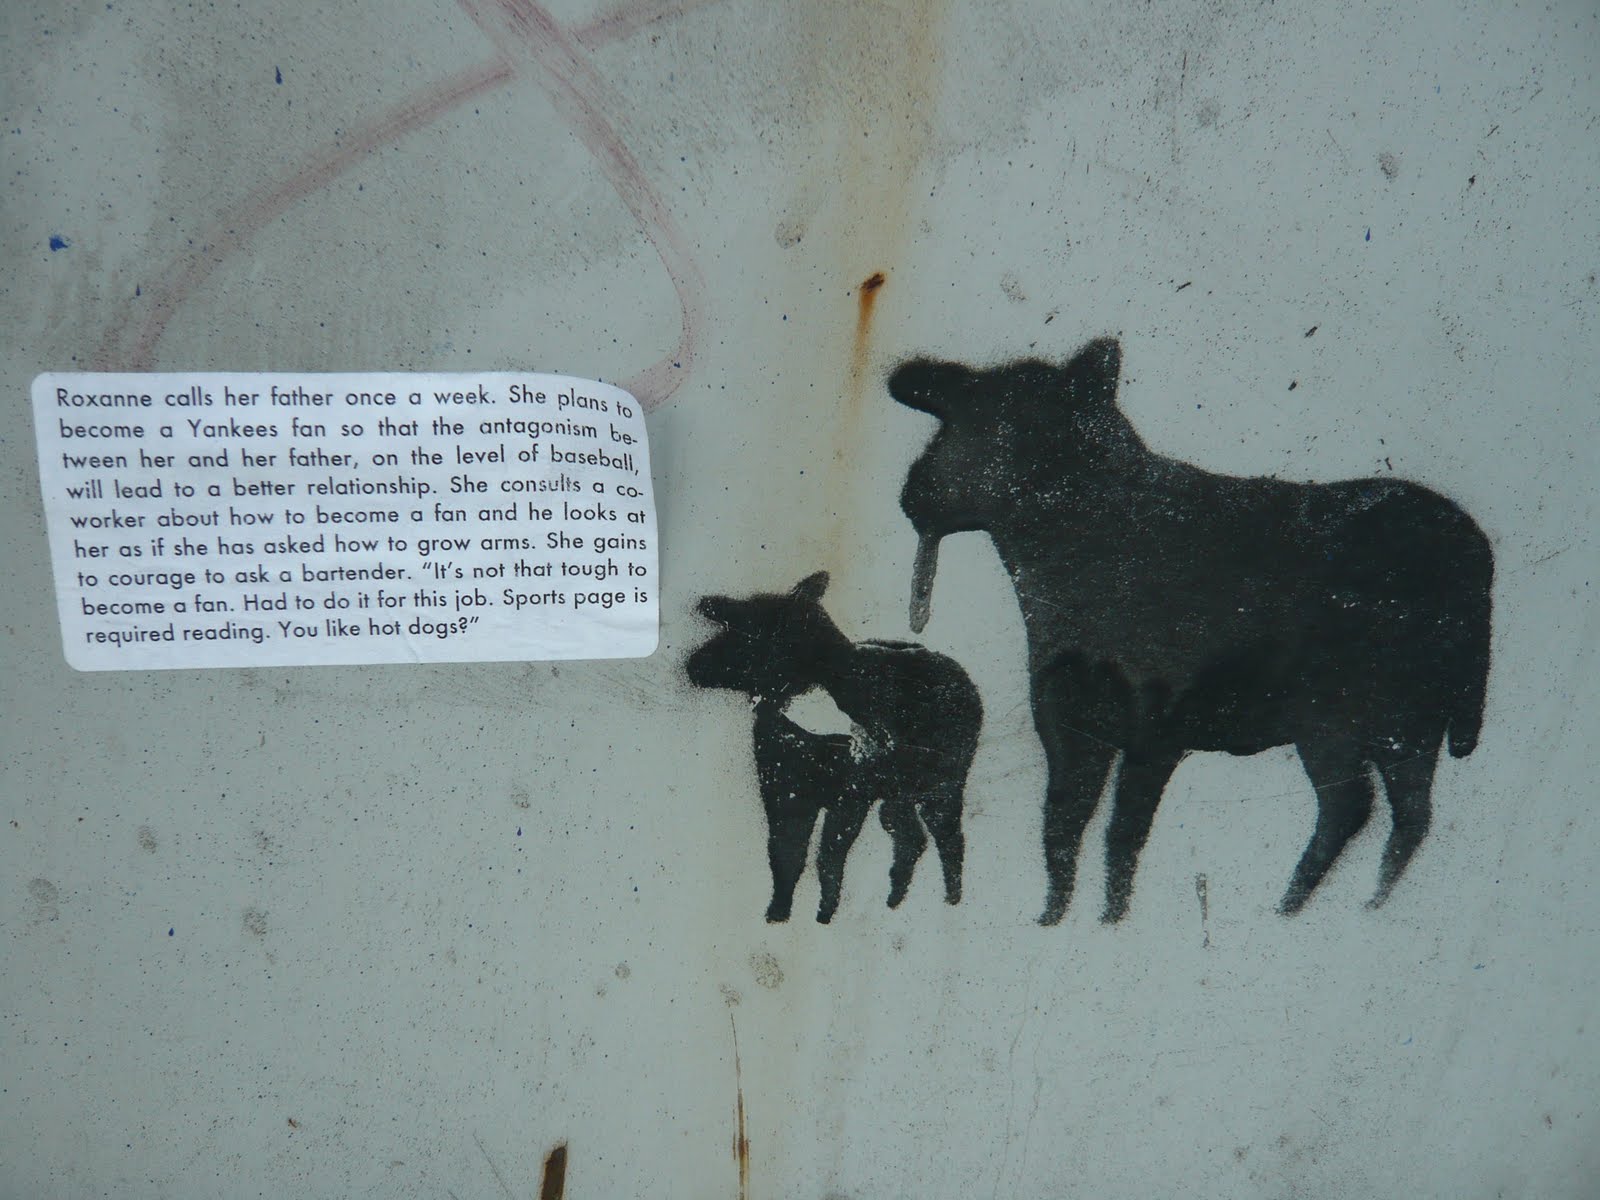 Roxanne calls her father once a week. She plans to
become a Yankees fan so that the antagonism be-
tween her and her father, on the level of baseball,
will lead to a better relationship. She consults a co-
worker about how to become a fan and he looks at
her as if she has asked how to grow arms. She gains
to courage to ask a bartender. “It’s not that tough to
become a fan. Had to do it for this job. Sports page is
required reading. You like hot dogs?”